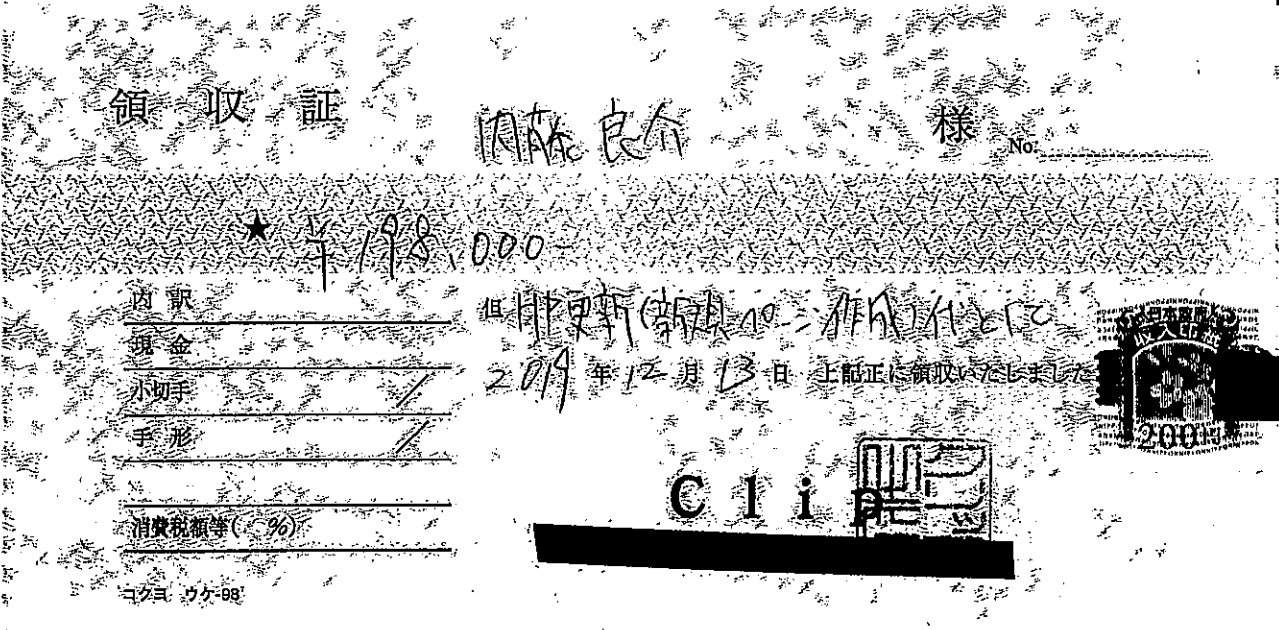 領収証
内藤良介 様
No.
★ ¥198,000-
内訳
現金
小切手 /
手形 /
消費税額等( %)
コクヨ ウケ-98
但 HP更新(新規ページ作成)代として
2019年12月13日 上記正に領収いたしました
日本政府
収入印紙
200円
Clip